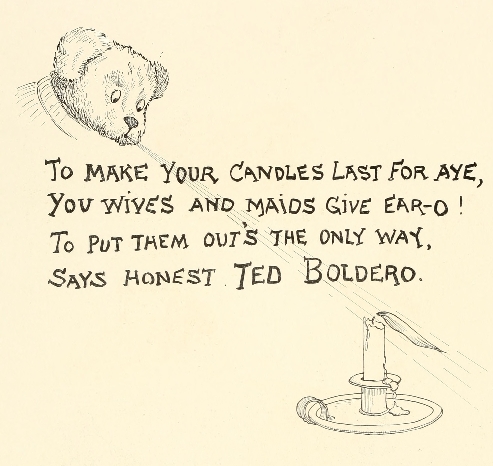 TO MAKE YOUR CANDLES LAST FOR AYE,
YOU WIVES AND MAIDS GIVE EAR-O!
TO PUT THEM OUT'S THE ONLY WAY,
SAYS HONEST TED BOLDERO.